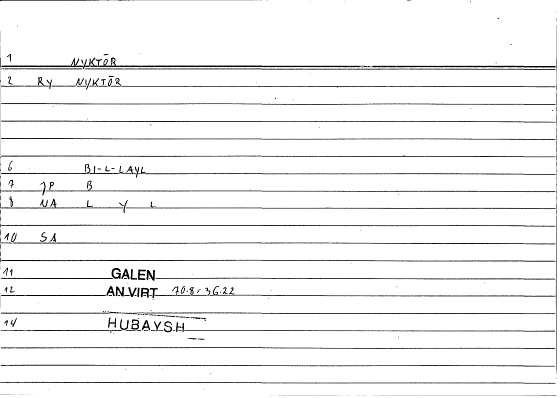 1 NYKTŌR
2 RY NYKTŌR
6 BI-L-LAYL
7 JP B
8 NA L Y L
10 SA
11 GALEN
12 AN.VIRT 70.8-36.22
14 HUBAYSH